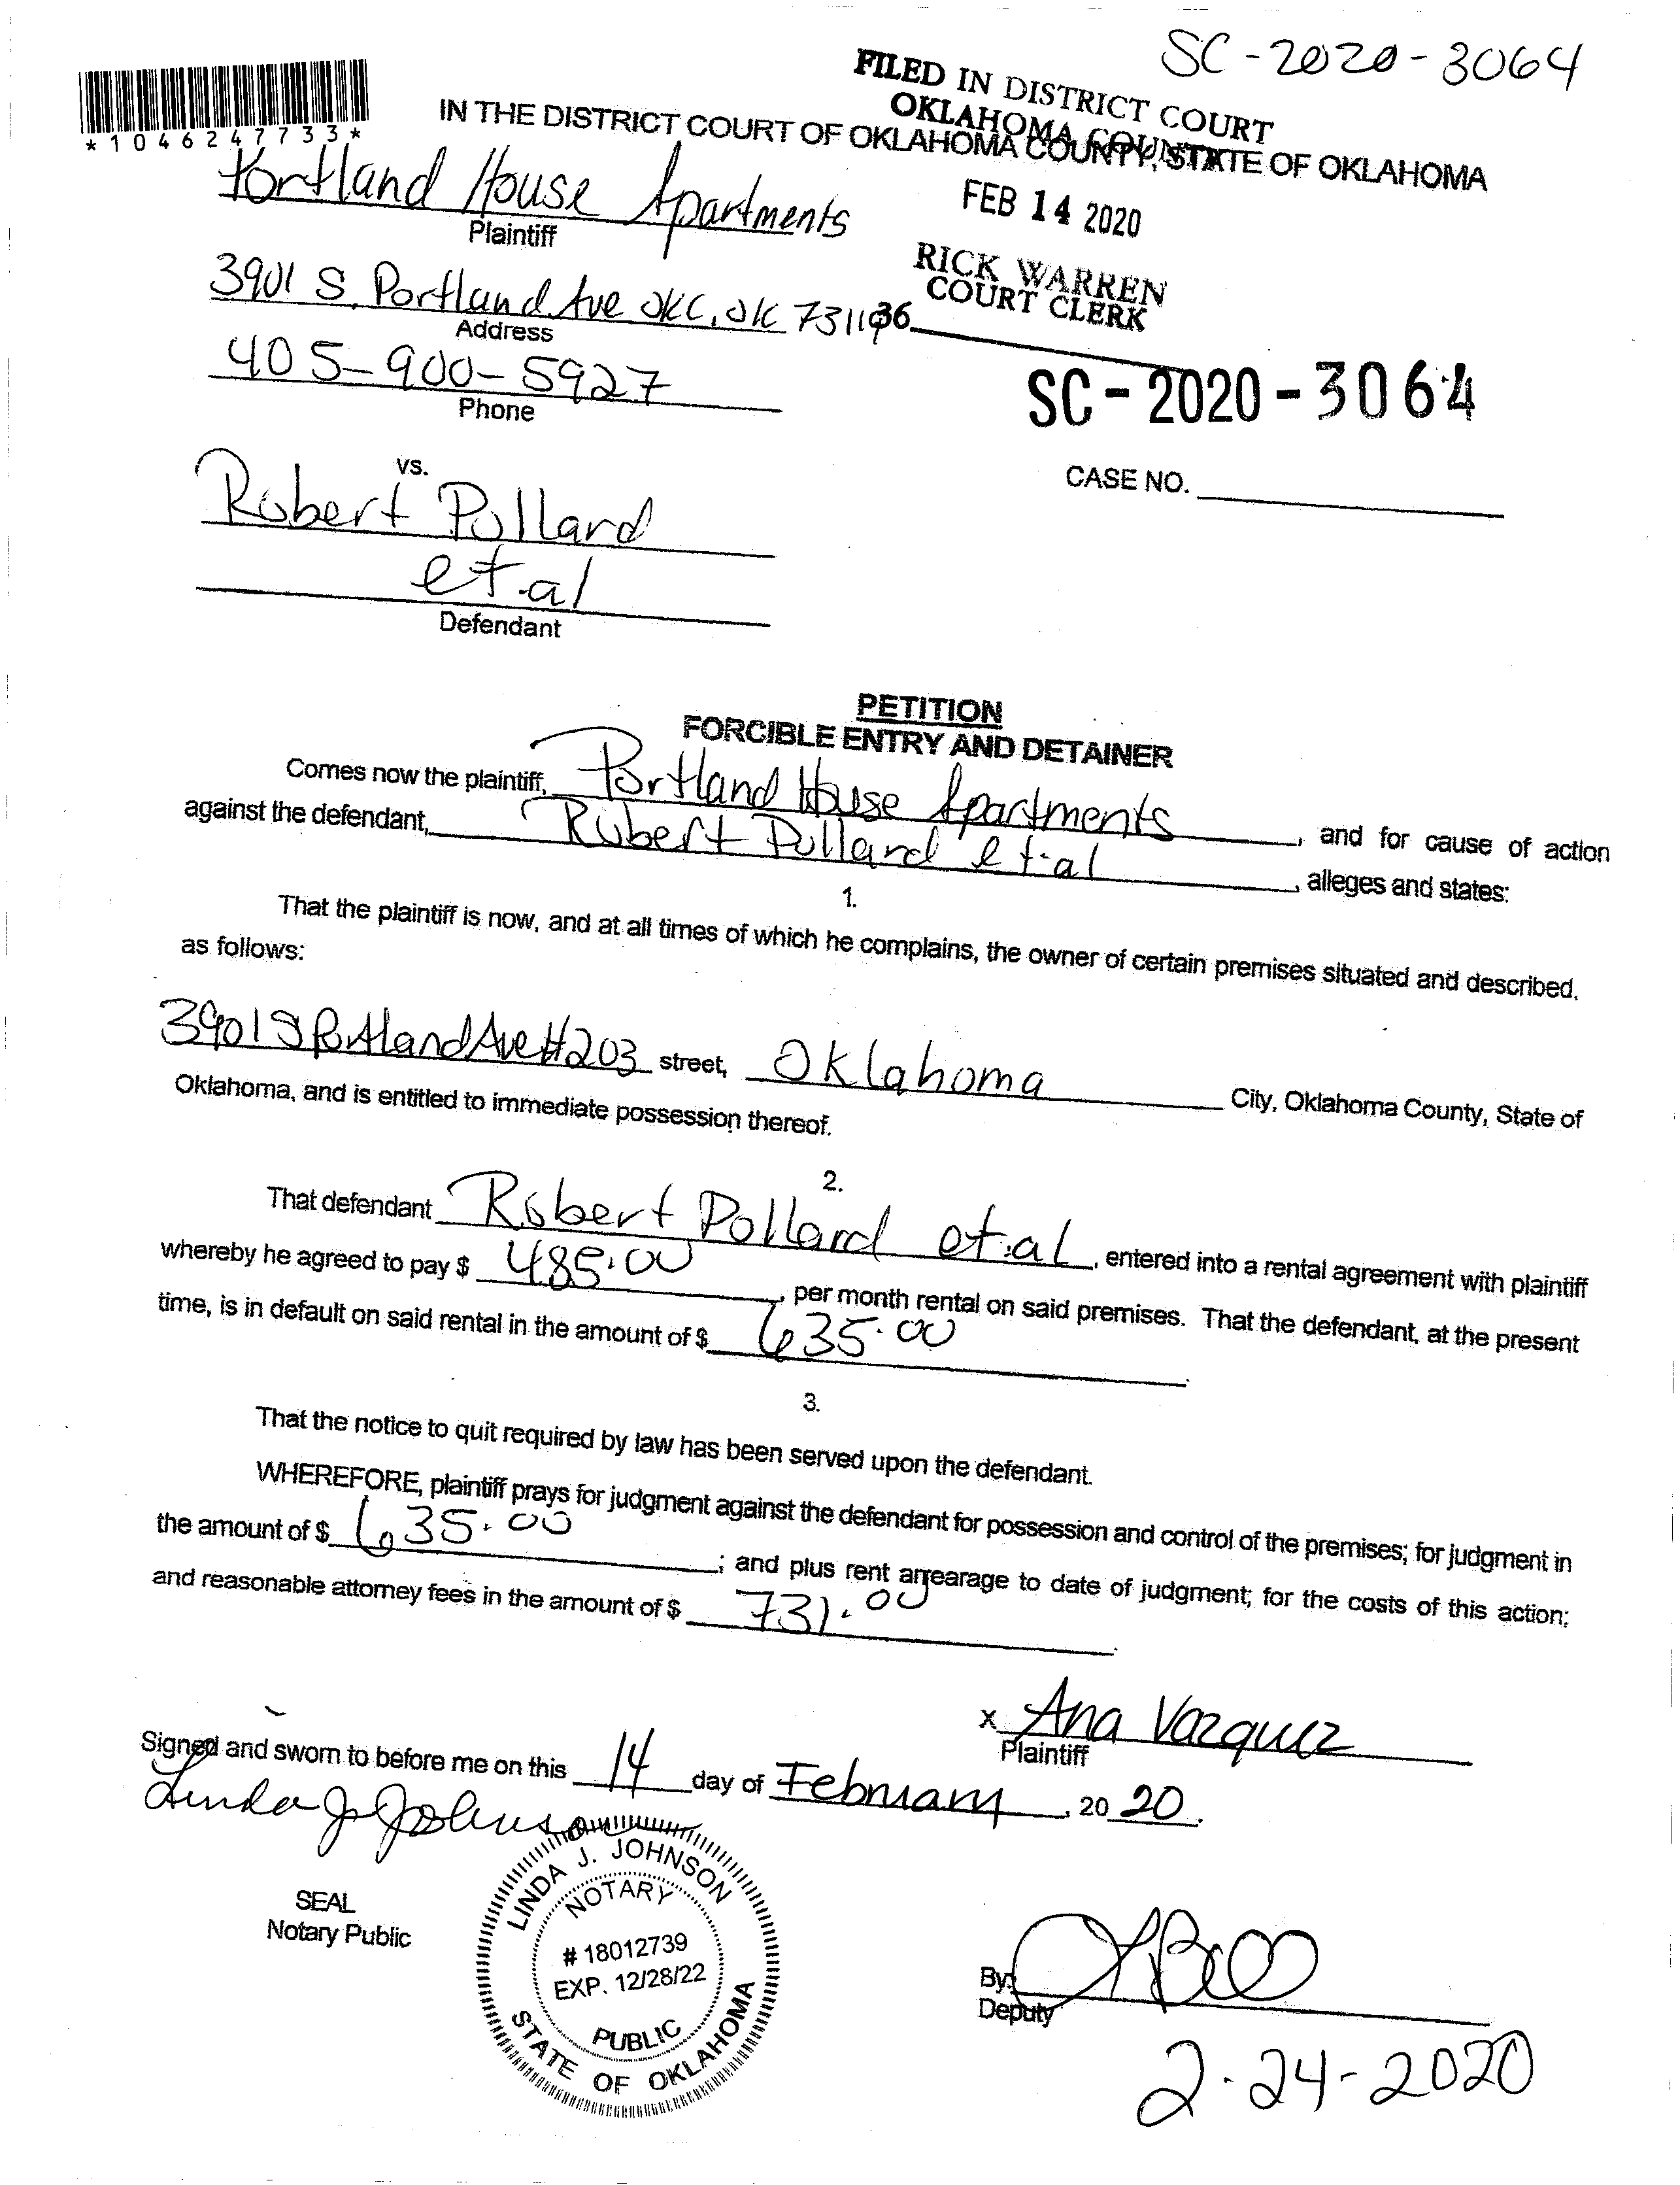 SC-2020-3064
*1046247733*
FILED IN DISTRICT COURT
OKLAHOMA COUNTY
IN THE DISTRICT COURT OF OKLAHOMA COUNTY, STATE OF OKLAHOMA
FEB 14 2020
RICK WARREN
COURT CLERK
Portland House Apartments
Plaintiff
3901 S. Portland Ave OKC, OK
Address
405-900-5927
Phone
SC-2020-3064
CASE NO.
vs.
Robert Pollard
et.al
Defendant
PETITION
FORCIBLE ENTRY AND DETAINER
Comes now the plaintiff, Portland House Apartments, and for cause of action
against the defendant, Robert Pollard et.al, alleges and states:
1.
That the plaintiff is now, and at all times of which he complains, the owner of certain premises situated and described,
as follows:
3901 S Portland Ave #203 street, Oklahoma City, Oklahoma County, State of
Oklahoma, and is entitled to immediate possession thereof.
2.
That defendant Robert Pollard et.al, entered into a rental agreement with plaintiff
whereby he agreed to pay $ 485.00, per month rental on said premises. That the defendant, at the present
time, is in default on said rental in the amount of $ 635.00.
3.
That the notice to quit required by law has been served upon the defendant.
WHEREFORE, plaintiff prays for judgment against the defendant for possession and control of the premises; for judgment in
the amount of $ 635.00; and plus rent arrearage to date of judgment; for the costs of this action;
and reasonable attorney fees in the amount of $ 731.00.
x Ana Vazquez
Plaintiff
Signed and sworn to before me on this 14 day of February, 2020.
Linda J Johnson
SEAL
Notary Public
LINDA J. JOHNSON
NOTARY
# 18012739
EXP. 12/28/22
PUBLIC
STATE OF OKLAHOMA
By:
Deputy
2-24-2020